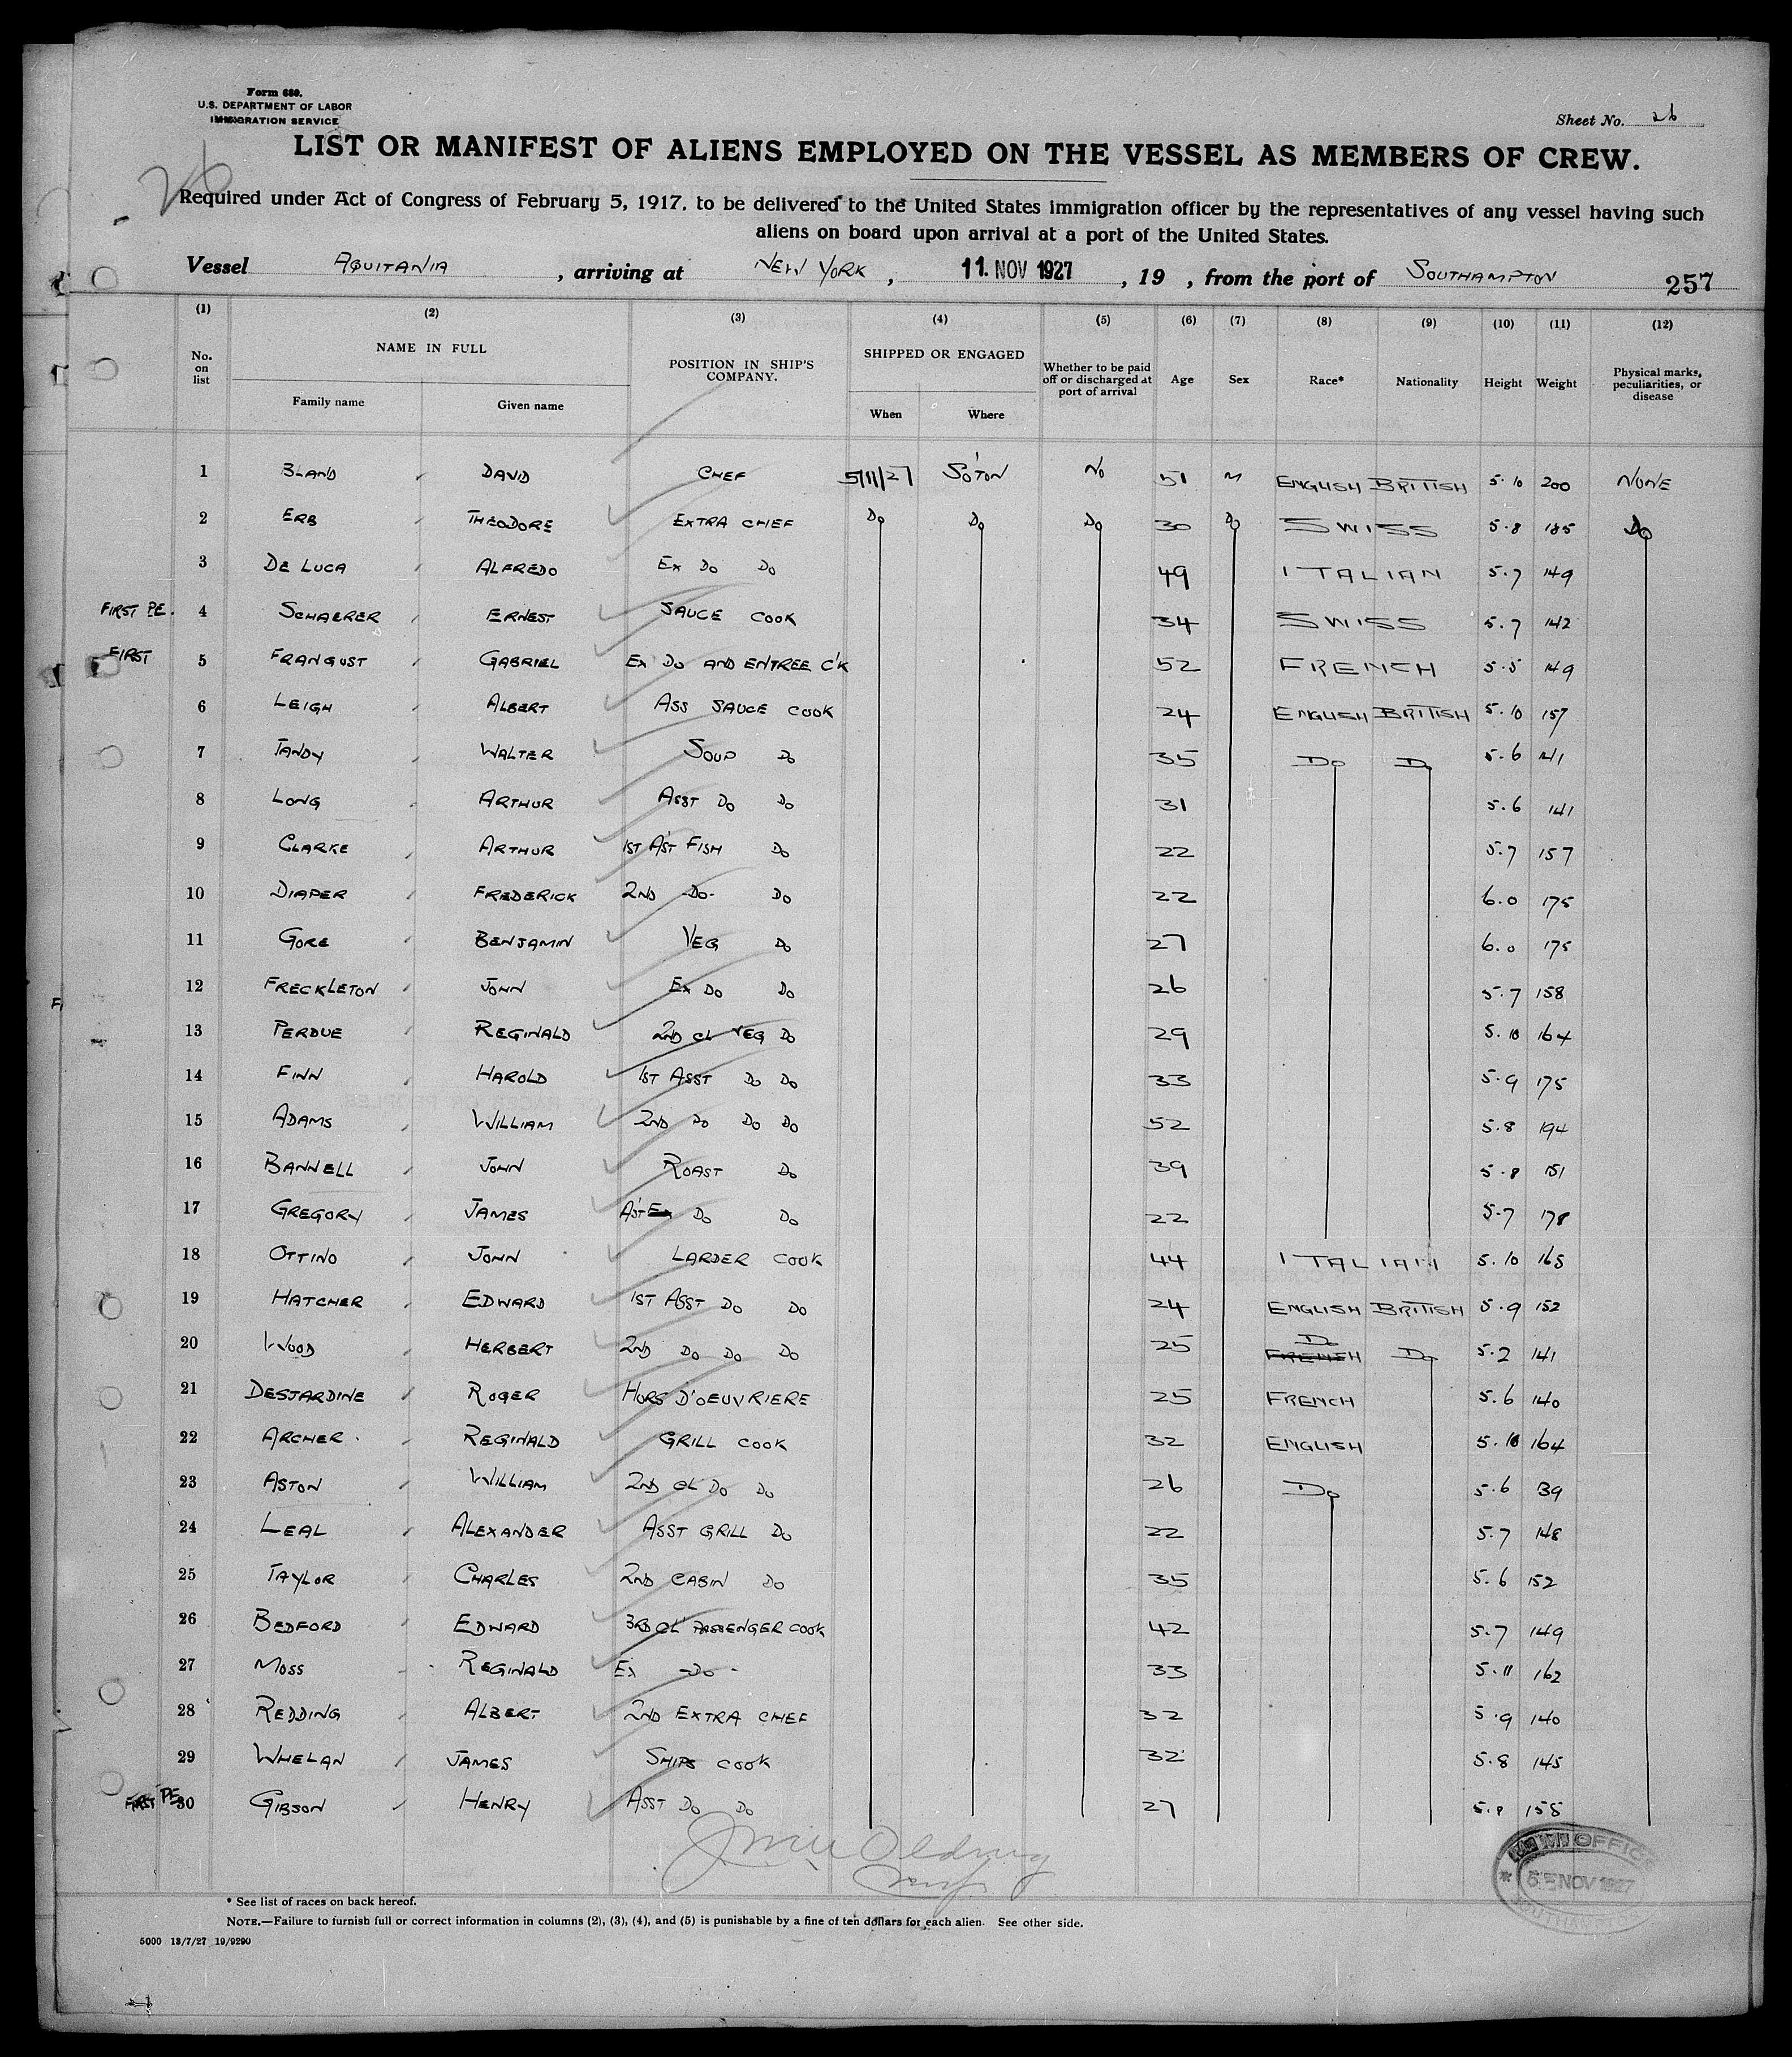 Form 689.
U.S. DEPARTMENT OF LABOR
IMMIGRATION SERVICE
Sheet No. 26
LIST OR MANIFEST OF ALIENS EMPLOYED ON THE VESSEL AS MEMBERS OF CREW.
26
Required under Act of Congress of February 5, 1917, to be delivered to the United States immigration officer by the representatives of any vessel having such
aliens on board upon arrival at a port of the United States.
Vessel AQUITANIA , arriving at NEW YORK , 11. NOV 1927 , 19 , from the port of SOUTHAMPTON 257
(1) (2) (3) (4) (5) (6) (7) (8) (9) (10) (11) (12)
No. on list NAME IN FULL Family name Given name POSITION IN SHIP'S COMPANY. SHIPPED OR ENGAGED When Where Whether to be paid off or discharged at port of arrival Age Sex Race* Nationality Height Weight Physical marks, peculiarities, or disease
1 BLAND DAVID CHEF 5/11/27 SO'TON NO 51 M ENGLISH BRITISH 5.10 200 NONE
2 ERB THEODORE EXTRA CHEF DO DO DO 30 DO SWISS 5.8 185 DO
3 DE LUCA ALFREDO EX DO DO 49 ITALIAN 5.7 149
FIRST PE. 4 SCHAERER ERNEST SAUCE COOK 34 SWISS 5.7 142
FIRST 5 FRANGUST GABRIEL EX DO AND ENTREE C'K 52 FRENCH 5.5 149
6 LEIGH ALBERT ASS SAUCE COOK 24 ENGLISH BRITISH 5.10 157
7 TANDY WALTER SOUP DO 35 DO DO 5.6 141
8 LONG ARTHUR ASST DO DO 31 5.6 141
9 CLARKE ARTHUR 1ST A'ST FISH DO 22 5.7 157
10 DIAPER FREDERICK 2ND -DO- DO 22 6.0 175
11 GORE BENJAMIN VEG DO 27 6.0 175
12 FRECKLETON JOHN EX DO DO 26 5.7 158
13 PERDUE REGINALD 2ND CL VEG DO 29 5.10 164
14 FINN HAROLD 1ST ASST DO DO 33 5.9 175
15 ADAMS WILLIAM 2ND DO DO DO 52 5.8 194
16 BANNELL JOHN ROAST DO 39 5.8 151
17 GREGORY JAMES A'ST EX DO DO 22 5.7 178
18 OTTINO JOHN LARDER COOK 44 ITALIAN 5.10 165
19 HATCHER EDWARD 1ST ASST DO DO 24 ENGLISH BRITISH 5.9 152
20 WOOD HERBERT 2ND DO DO DO 25 DO FRENCH DO 5.2 141
21 DESJARDINE ROGER HORS D'OEUVRIERE 25 FRENCH 5.6 140
22 ARCHER REGINALD GRILL COOK 32 ENGLISH 5.10 164
23 ASTON WILLIAM 2ND CL DO DO 26 DO 5.6 139
24 LEAL ALEXANDER ASST GRILL DO 22 5.7 148
25 TAYLOR CHARLES 2ND CABIN DO 35 5.6 152
26 BEDFORD EDWARD 3RD CL' PASSENGER COOK 42 5.7 149
27 MOSS REGINALD EX -DO- 33 5.11 162
28 REDDING ALBERT 2ND EXTRA CHEF 32 5.9 140
29 WHELAN JAMES SHIPS COOK 32 5.8 145
FIRST PE. 30 GIBSON HENRY ASST DO DO 27 5.8 155
OFFICE
5 NOV 1927
SOUTHAMPTON
* See list of races on back hereof.
NOTE.—Failure to furnish full or correct information in columns (2), (3), (4), and (5) is punishable by a fine of ten dollars for each alien. See other side.
5000 13/7/27 19/9290